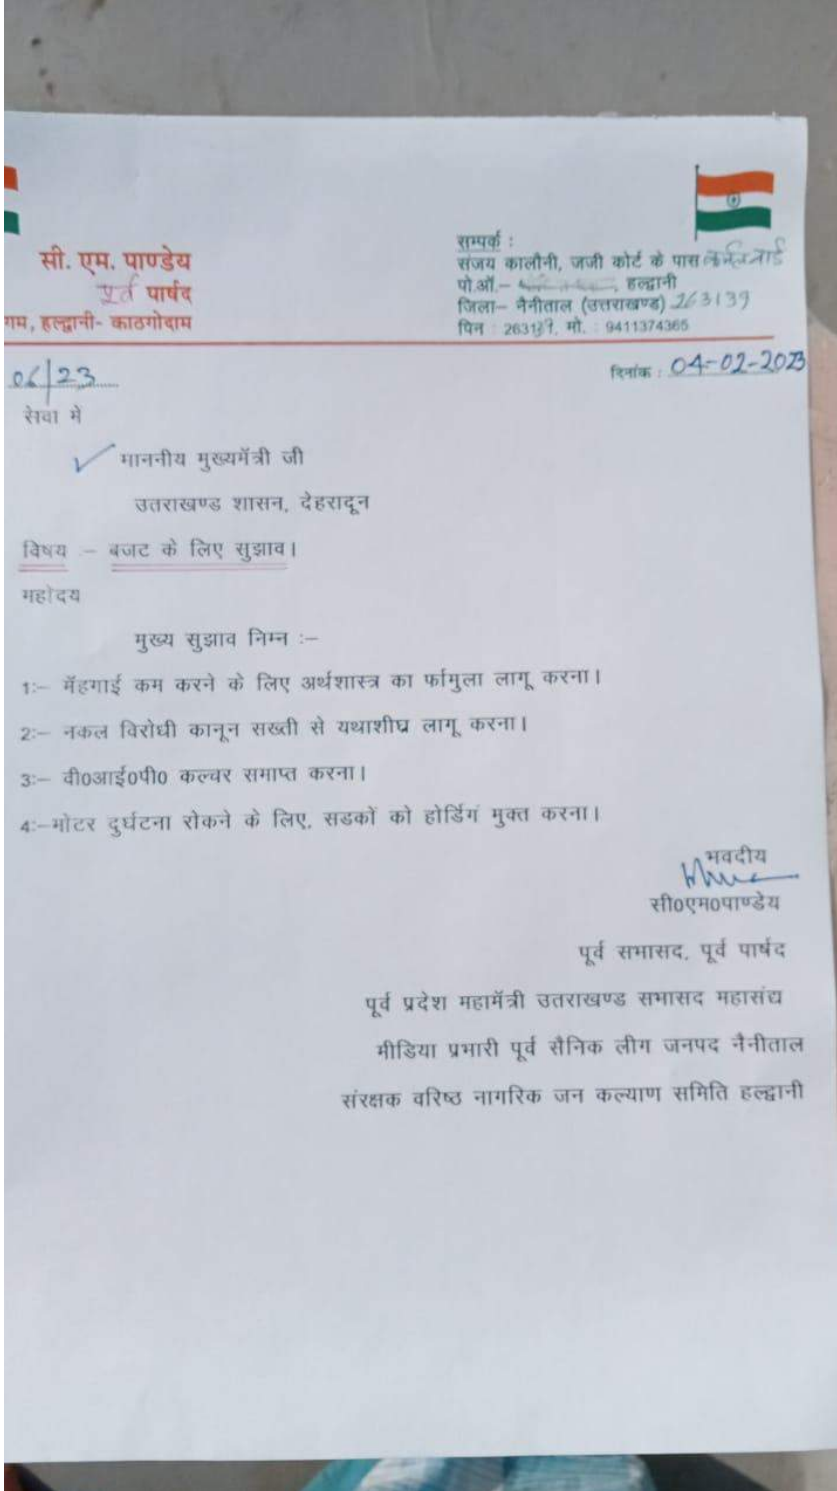 सम्पर्क :
सी. एम. पाण्डेय
संजय कालौनी, जजी कोर्ट के पास
पूर्व पार्षद
पो.ऑ.– हल्द्वानी
जिला– नैनीताल (उत्तराखण्ड) 263139
गम, हल्द्वानी- काठगोदाम
पिन : 263139, मो. : 9411374365
06/23
दिनांक : 04-02-2023
सेवा में
माननीय मुख्यमॅत्री जी
उतराखण्ड शासन, देहरादून
विषय – बजट के लिए सुझाव।
महोदय
मुख्य सुझाव निम्न :–
1:– मॅहगाई कम करने के लिए अर्थशास्त्र का र्फामुला लागू करना।
2:– नकल विरोधी कानून सख्ती से यथाशीघ्र लागू करना।
3:– वी0आई0पी0 कल्चर समाप्त करना।
4:–मोटर दुर्घटना रोकने के लिए, सडकों को होर्डिगं मुक्त करना।
भवदीय
सी0एम0पाण्डेय
पूर्व सभासद, पूर्व पार्षद
पूर्व प्रदेश महामॅत्री उतराखण्ड सभासद महासंद्य
मीडिया प्रभारी पूर्व सैनिक लीग जनपद नैनीताल
संरक्षक वरिष्ठ नागरिक जन कल्याण समिति हल्द्वानी